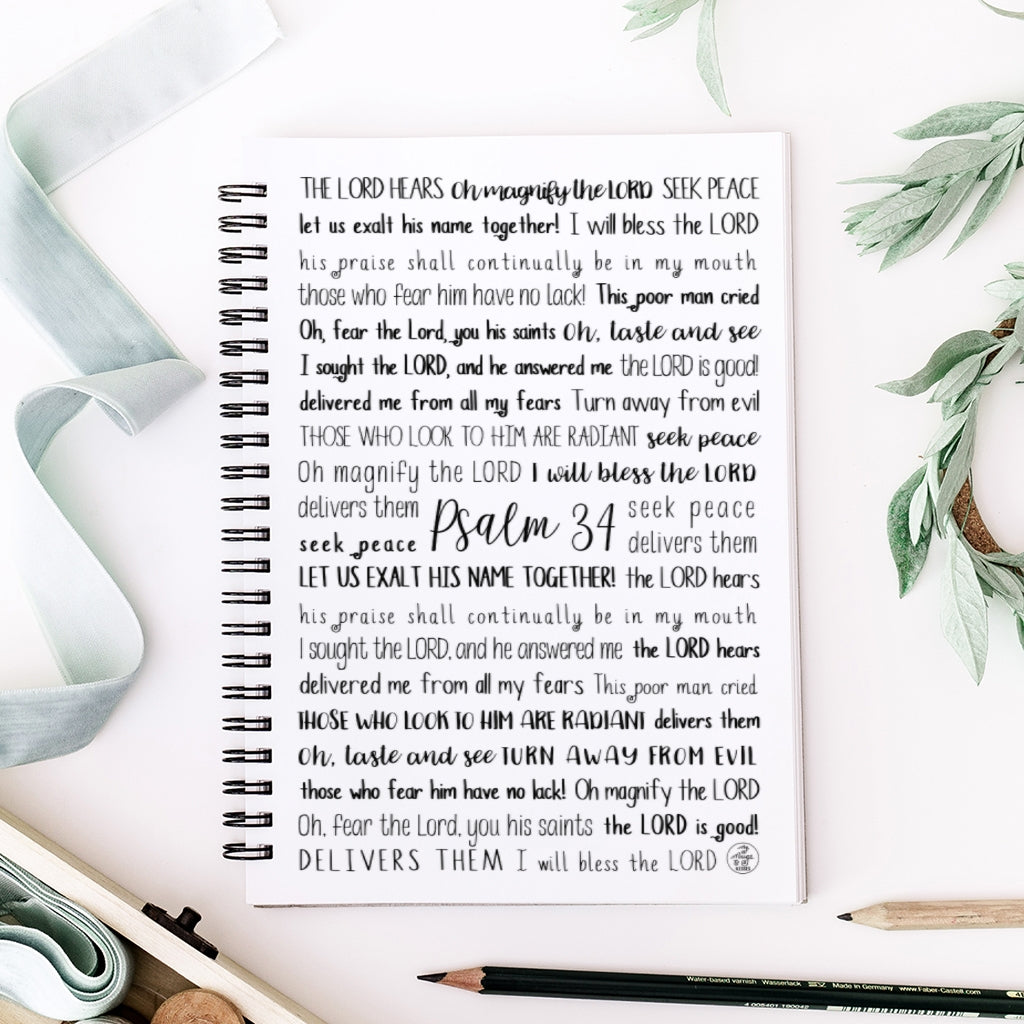 THE LORD HEARS Oh magnify the LORD SEEK PEACE
let us exalt his name together! I will bless the LORD
his praise shall continually be in my mouth
those who fear him have no lack! This poor man cried
Oh, fear the Lord, you his saints Oh, taste and see
I sought the LORD, and he answered me the LORD is good!
delivered me from all my fears Turn away from evil
THOSE WHO LOOK TO HIM ARE RADIANT seek peace
Oh magnify the LORD I will bless the LORD
delivers them Psalm 34 seek peace
seek peace delivers them
LET US EXALT HIS NAME TOGETHER! the LORD hears
his praise shall continually be in my mouth
I sought the LORD, and he answered me the LORD hears
delivered me from all my fears This poor man cried
THOSE WHO LOOK TO HIM ARE RADIANT delivers them
Oh, taste and see TURN AWAY FROM EVIL
those who fear him have no lack! Oh magnify the LORD
Oh, fear the Lord, you his saints the LORD is good!
DELIVERS THEM I will bless the LORD
Water-based varnish Wasserlack SV Made in Germany www.Faber-Castell.com
4 005401 190042